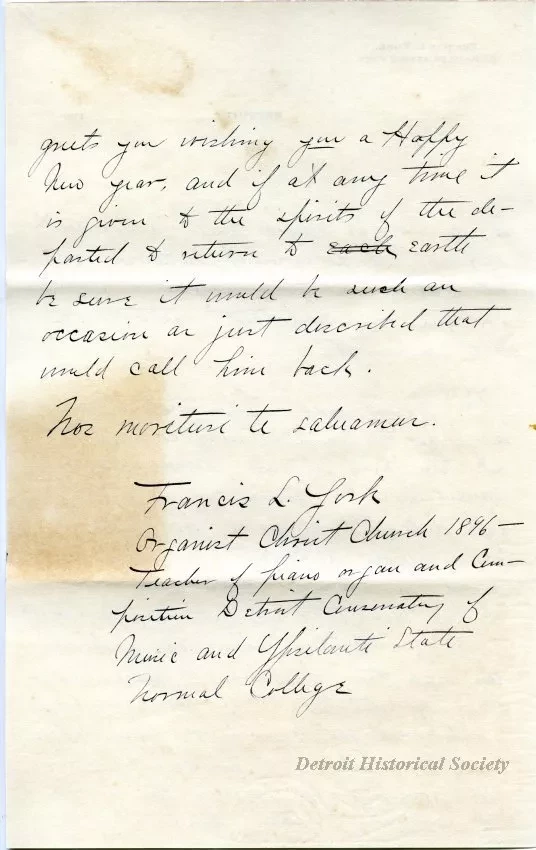 greets you wishing you a Happy
New year, and if at any time it
is given to the spirits of the de-
parted to return to each earth
be sure it would be such an
occasion as just described that
would call him back.
Nos morituri te saluamus.
Francis L. York
Organist Christ Church 1896—
Teacher of piano organ and Com-
position Detroit Conservatory of
Music and Ypsilanti State
Normal College
Detroit Historical Society